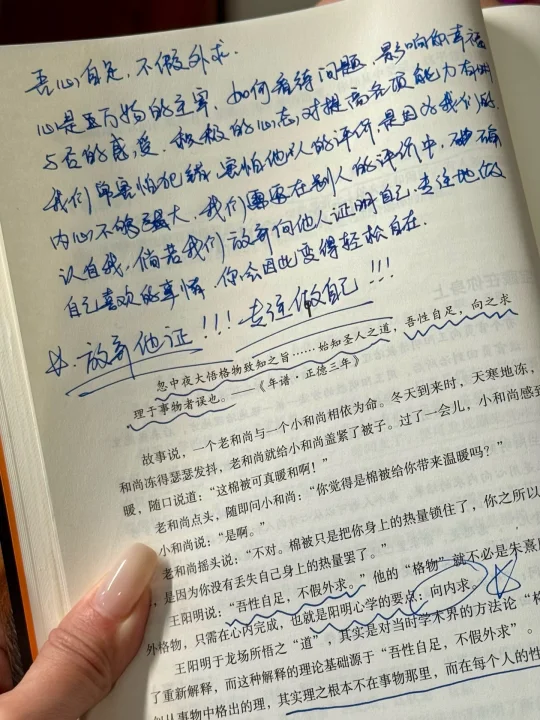 吾心自足，不假外求。
心是五万物的主宰，如何看待问题，影响你幸福
与否的感受。积极的心态，对提高各项能力有帮
我们常害怕犯错，害怕他人的评价，是因为我们的
内心不够强大。我们需要在别人的评价中，确
认自我，倘若我们放弃向他人证明自己，专注地做
自己喜欢的事情，你会因此变得轻松自在。
☆.放弃他证！！！专注做自己！！！
忽中夜大悟格物致知之旨……始知圣人之道，吾性自足，向之求
理于事物者误也。——《年谱·正德三年》
故事说，一个老和尚与一个小和尚相依为命。冬天到来时，天寒地冻，
和尚冻得瑟瑟发抖，老和尚就给小和尚盖紧了被子。过了一会儿，小和尚感到
暖，随口说道：“这棉被可真暖和啊！”
老和尚点头，随即问小和尚：“你觉得是棉被给你带来温暖吗？”
小和尚说：“是啊。”
老和尚摇头说：“不对。棉被只是把你身上的热量锁住了，你之所以
，是因为你没有丢失自己身上的热量罢了。”
王阳明说：“吾性自足，不假外求。”他的“格物”就不必是朱熹
外格物，只需在心内完成，也就是阳明心学的要点：向内求。
王阳明于龙场所悟之“道”，其实是对当时学术界的方法论“格
了重新解释，而这种解释的理论基础源于“吾性自足，不假外求”。
从事物中格出的理，其实理之根本不在事物那里，而在每个人的性